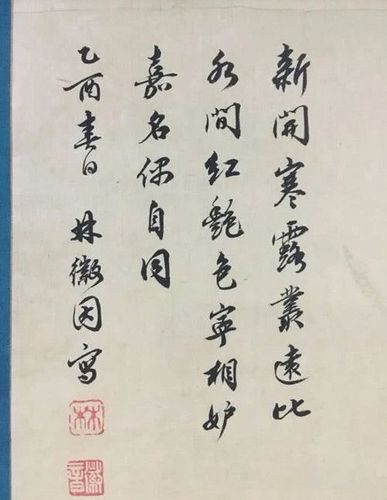 新開寒露叢遠比
水間紅艷色寧相妒
嘉名偶自同
乙酉春日 林徽因寫
林
徽音